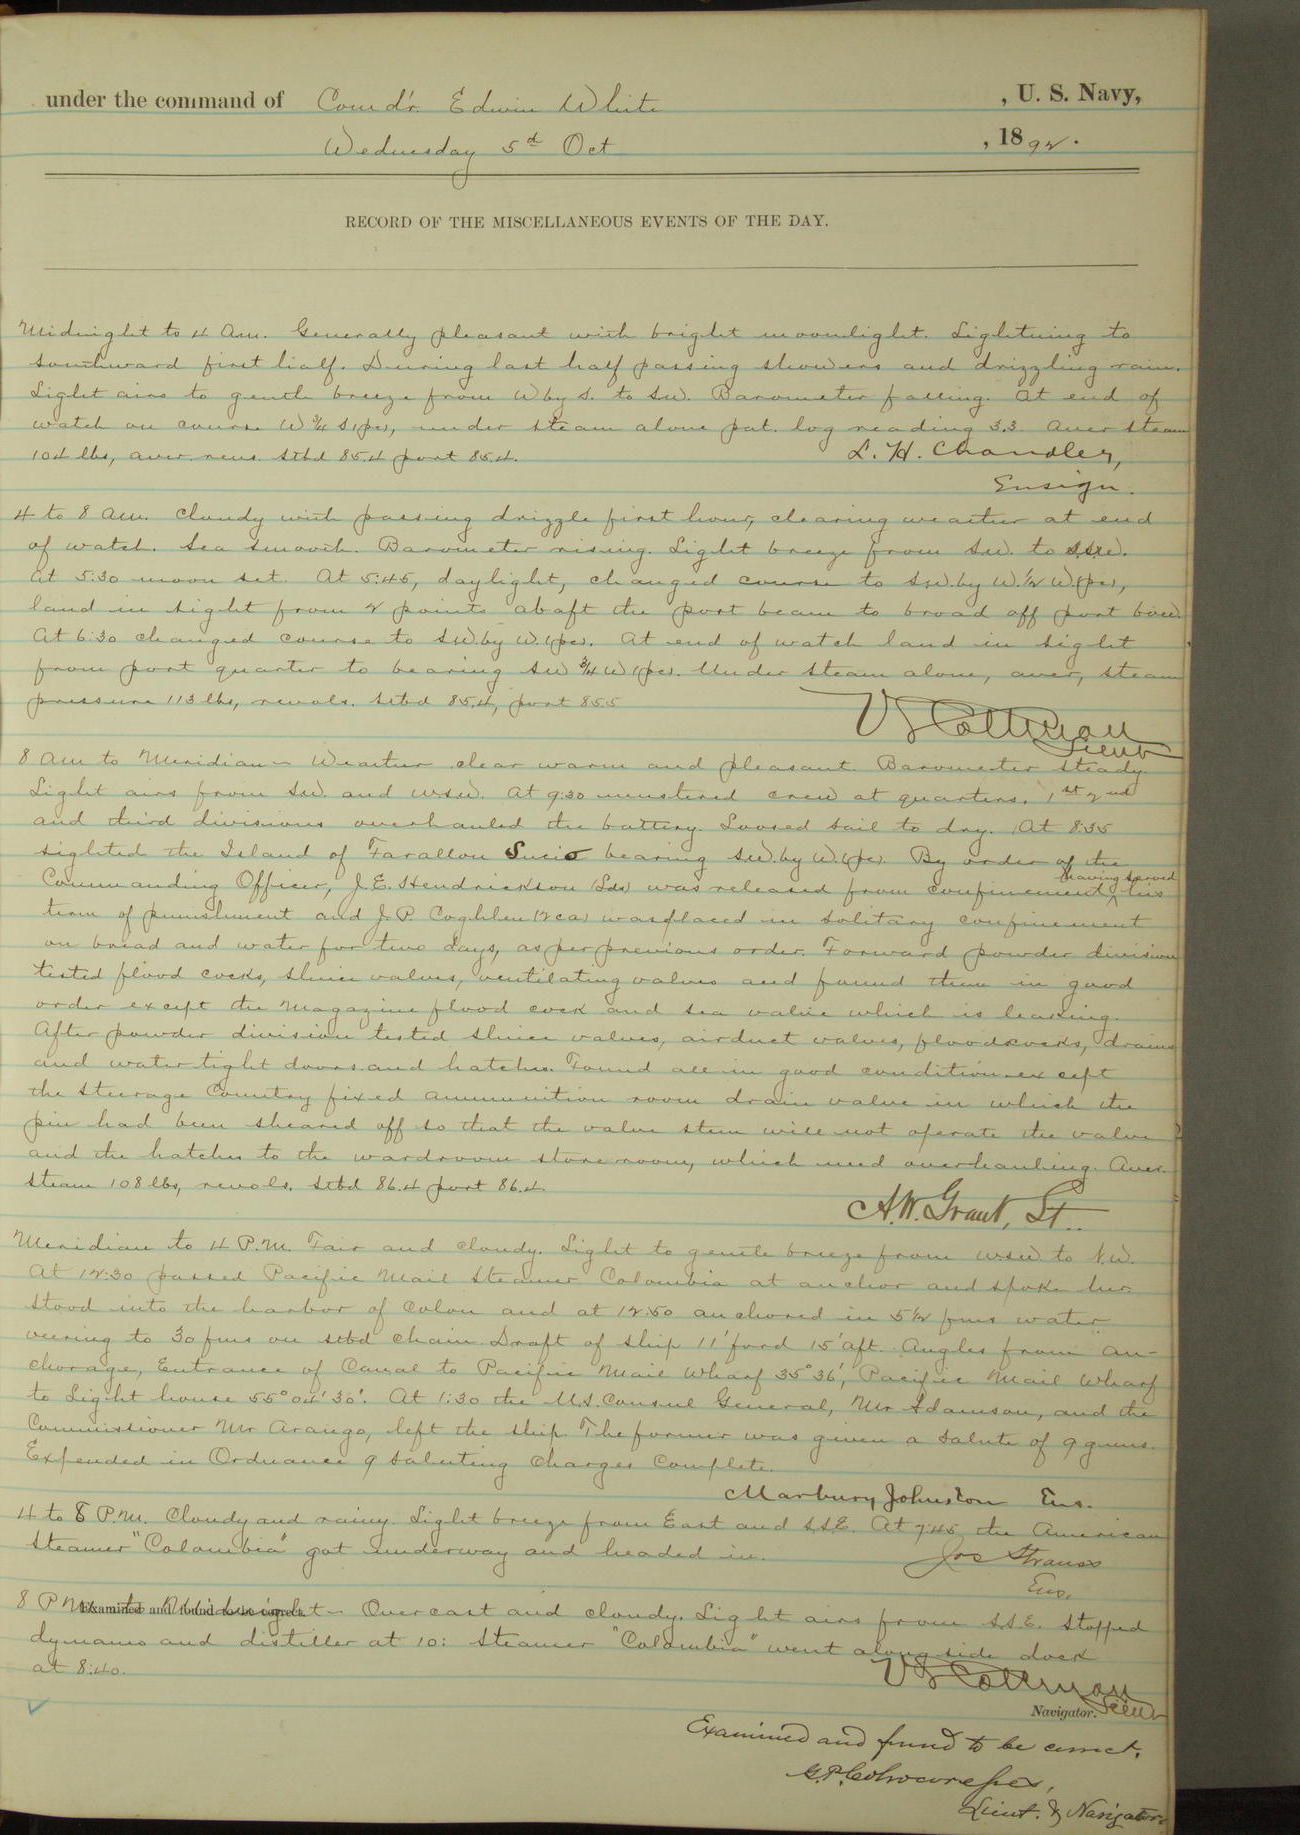 under the command of Comd'r. Edwin White , U. S. Navy,
Wednesday 5d Oct , 1892.
RECORD OF THE MISCELLANEOUS EVENTS OF THE DAY.
Midnight to 4 Am. Generally pleasant with bright moonlight. Lightning to
southward first half. During last half passing showers and drizzling rain.
Light airs to gentle breeze from W by S. to SW. Barometer falling. At end of
watch on course W 3/4 S (pc), under steam alone pat. log reading 3.3 Aver steam
104 lbs, aver. revs. stbd 85.4 port 85.4.
L. H. Chandler,
Ensign.
4 to 8 am. Cloudy with passing drizzle first hour, clearing weather at end
of watch. Sea smooth. Barometer rising. Light breeze from SW. to
At 5:30 moon set. At 5:45, daylight, changed course to S.W. by W. 1/2 W. (pc),
land in sight from 2 points abaft the port beam to broad off port bow.
At 6:30 changed course to SW by W. (pc). At end of watch land in sight
from port quarter to bearing SW 3/4 W (pc). Under steam alone, aver, steam
pressure 113 lbs, revols. stbd 85.4, port 85.5
Lieut
8 Am to Meridian - Weather clear warm and pleasant. Barometer steady.
Light airs from SW. and WSW. At 9:30 mustered crew at quarters. 1st 2nd
and third divisions overhauled the battery. Loosed sail to dry. At 8:35
sighted the Island of Farallon Sucio bearing SW. by W. (pc). By order of the
Commanding Officer, J. E. Hendrickson (Lds) was released from confinement, having served his
term of punishment and J. P. Coghlen (2ca) was placed in solitary confinement
on bread and water for two days, as per previous order. Forward powder division
tested flood cocks, sluice valves, ventilating valves and found them in good
order except the Magazine flood cock and sea valve which is leaking.
After powder division tested sluice valves, airduct valves, floodcocks, drains
and water tight doors and hatches. Found all in good condition except
the steerage Country fixed ammunition room drain valve in which the
pin had been sheared off so that the valve stem will not operate the valve
and the hatches to the wardroom store room, which need overhauling. Aver.
steam 108 lbs, revols. stbd 86.4 port 86.4
A. W. Grant, Lt..
Meridian to 4 P.M. Fair and cloudy. Light to gentle breeze from WSW to N.W.
At 12:30 passed Pacific Mail Steamer Colombia at anchor and spoke her.
Stood into the harbor of Colon and at 12:50 anchored in 5 1/2 fms water
veering to 30 fms on stbd chain. Draft of ship 11' ford 15' aft. Angles from an-
chorage, Entrance of Canal to Pacific Mail Wharf 35° 36', Pacific Mail Wharf
to Light house 55° 04' 30'. At 1:30 the U.S. Consul General, Mr Adamson, and the
Commissioner Mr Arango, left the ship. The former was given a salute of 9 guns.
Expended in Ordnance 9 saluting charges complete.
Marbury Johnston Ens.
4 to 8 P.M. Cloudy and rainy. Light breeze from East and S.S.E. At 7:45 the American
Steamer "Colombia" got underway and headed in.
Jos Strauss
Ens.
8 P M. to Midnight - Overcast and cloudy. Light airs from S.S.E. Stopped
Examined and found to be correct.
dynamo and distiller at 10: Steamer "Colombia" went along side dock
at 8:40.
Lieut
Navigator.
Examined and found to be correct.
G. P. Colvocoresses,
Lieut. & Navigator.